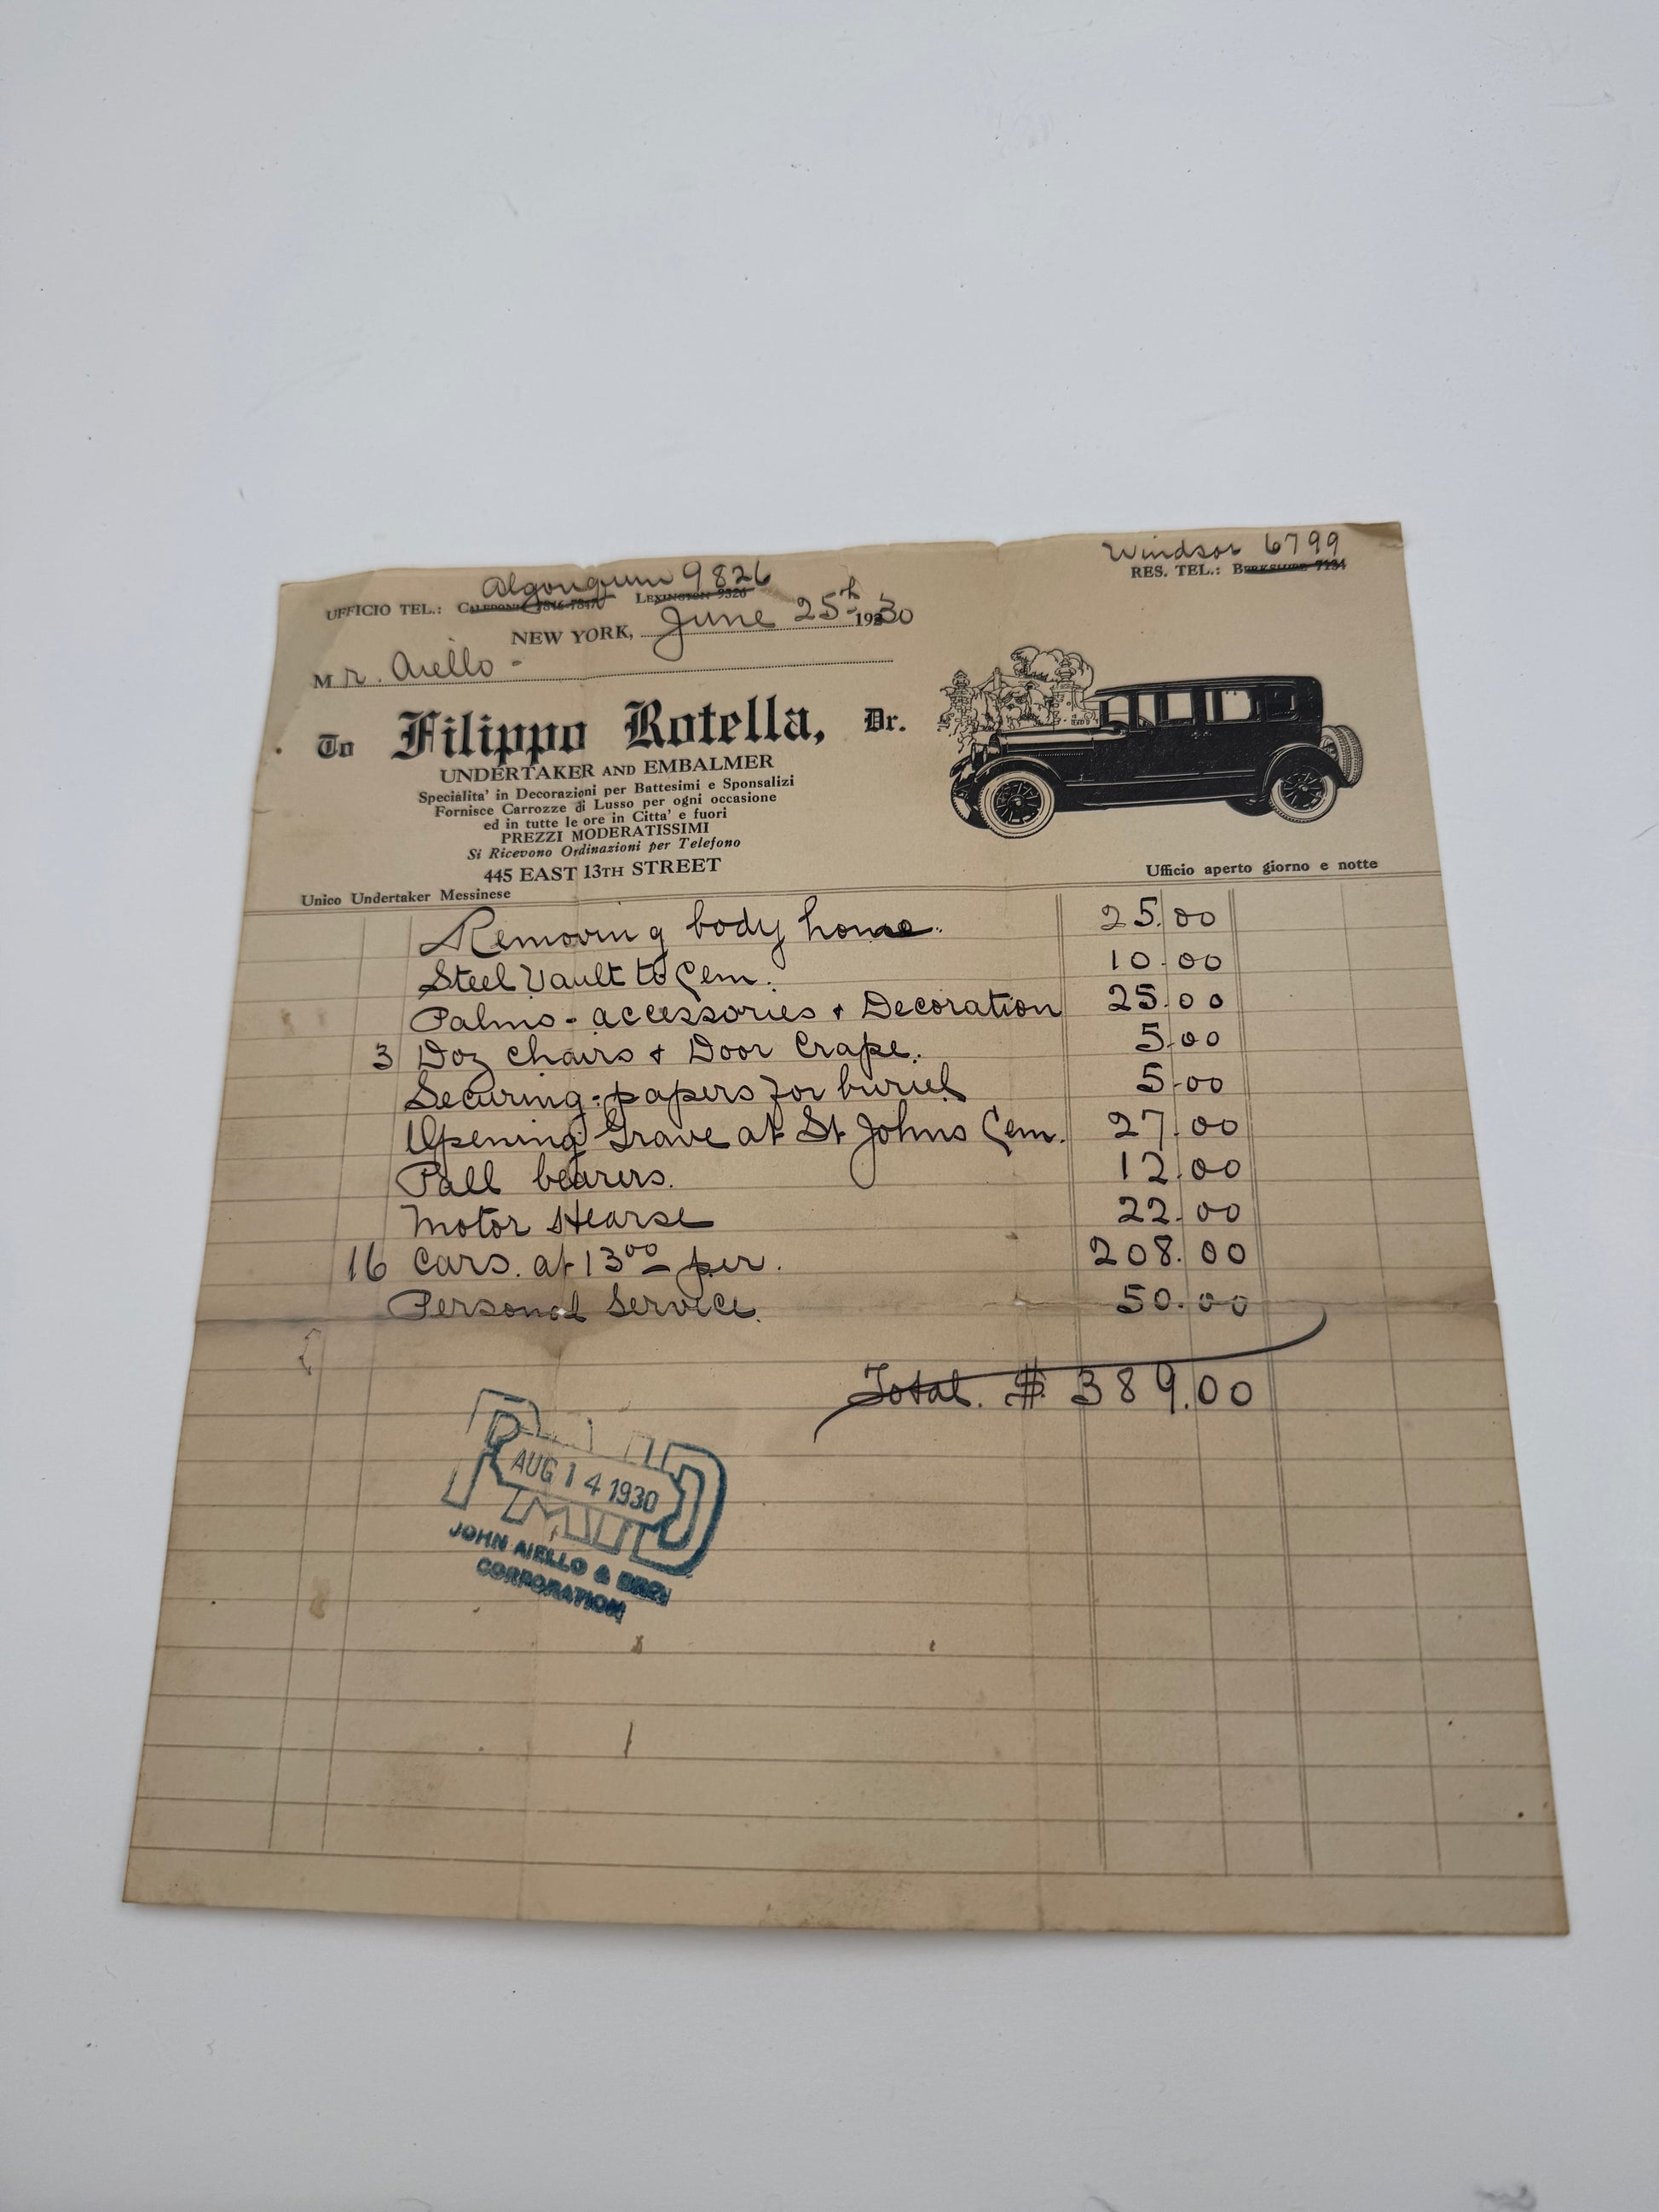 Windsor 6799
RES. TEL.: BERKSHIRE 7134
Algonquin 9826
UFFICIO TEL.: CALEDONIA LEXINGTON 9326
NEW YORK, June 25th 1930
Mr. Aiello -
To Filippo Rotella, Dr.
UNDERTAKER AND EMBALMER
Specialita' in Decorazioni per Battesimi e Sponsalizi
Fornisce Carrozze di Lusso per ogni occasione
ed in tutte le ore in Citta' e fuori
PREZZI MODERATISSIMI
Si Ricevono Ordinazioni per Telefono
445 EAST 13TH STREET
Unico Undertaker Messinese Ufficio aperto giorno e notte
Removing body home. 25.00
Steel Vault to Cem. 10.00
Palms - accessories + Decoration 25.00
3 Doz chairs + Door Crape. 5.00
Securing - papers for buriel 5.00
Opening Grave at St Johns Cem. 27.00
Pall bearers. 12.00
Motor Hearse 22.00
16 Cars. at 13.00 per. 208.00
Personal Service. 50.00
Total. $ 389.00
PAID
AUG 14 1930
JOHN AIELLO & BRO.
CORPORATION